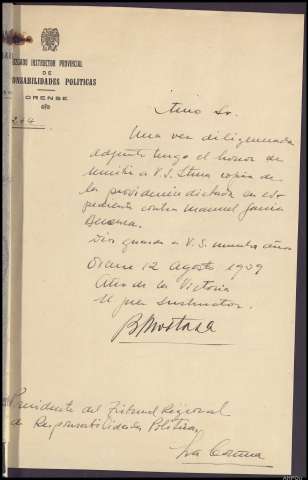 ZGADO INSTRUCTOR PROVINCIAL
DE
PONSABILIDADES POLITICAS
ORENSE
Iltmo Sr.
Una vez diligenciada
adjunto tengo el honor de
remitir a V.S. Iltma copia de
la providencia dictada en ex-
pediente contra Manuel Garcia
Dios guarde a V.S. muchos años
Orense 12 Agosto 1939
Año de la Victoria
El Juez Instructor
Presidente del Tribunal Regional
de Responsabilidades Politicas
La Coruña